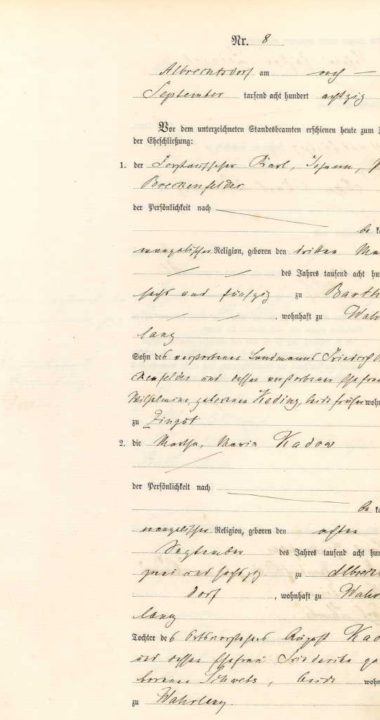 Nr. 8
Albrechtsdorf am
September tausend acht hundert achtzig
Vor dem unterzeichneten Standesbeamten erschienen heute zum
der Eheschließung:
1. der Forstaufseher Karl, Johann,
der Persönlichkeit nach
evangelischer Religion, geboren den dritten
des Jahres tausend acht
sechs und fünfzig zu Barth
, wohnhaft zu
lang
Sohn des verstorbenen Landmanns Friedrich
und dessen verstorbene Ehefrau
Wilhelmine geborenen Hading, beide früher
zu Zingst
2. die Martha, Maria Kadow
der Persönlichkeit nach
evangelischer Religion, geboren den achten
September des Jahres tausend acht hun
zwei und sechzig zu
dorf , wohnhaft zu Wahr
lang
Tochter des Ortsvorstehers August
und dessen Ehefrau Friederike ge
borenen beide
zu Wahrlang